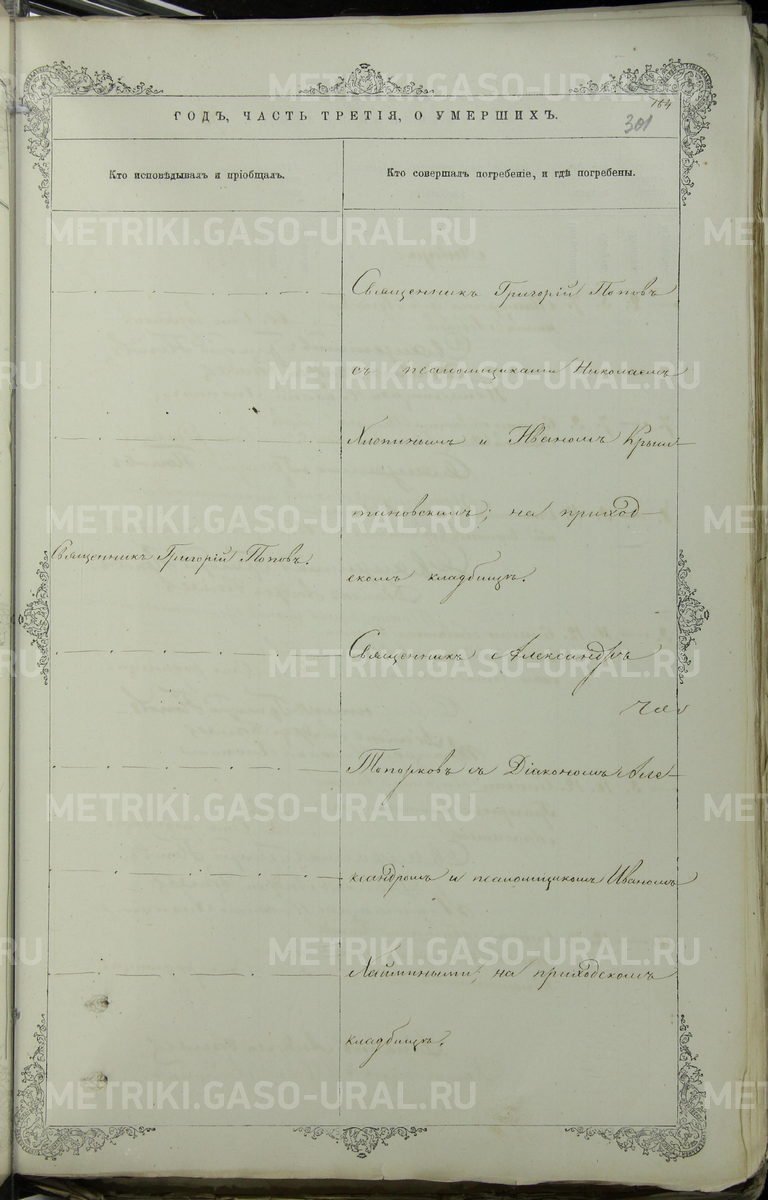 164
301
ГОДЪ, ЧАСТЬ ТРЕТІЯ, О УМЕРШИХЪ.
Кто исповѣдывалъ и пріобщалъ.
Кто совершалъ погребеніе, и гдѣ погребены.
Священникъ Григорій Поповъ.
Священникъ Григорій Поповъ
съ псаломщиками Николаемъ
Хлопинымъ и Иваномъ
тиновскимъ; на приход-
скомъ кладбищѣ.
Священникъ Александръ
Топорковъ съ Діакономъ Але-
ксандромъ и псаломщикомъ Иваномъ
на приходскомъ
кладбищѣ.
METRIKI.GASO-URAL.RU